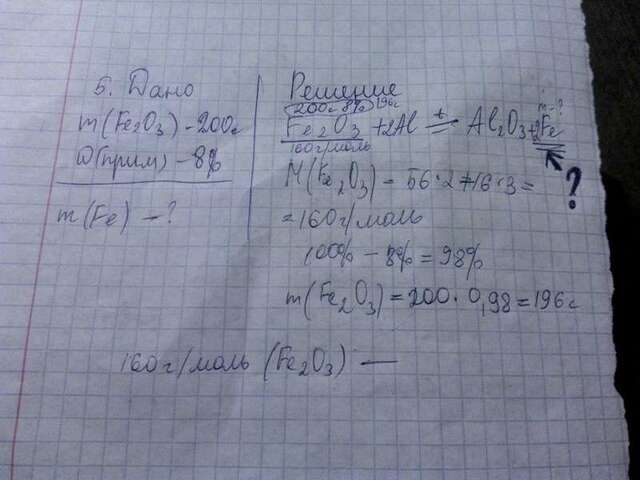 5. Дано
m(Fe₂O₃) - 200г
ω(прим) - 8%
m(Fe) - ?
Решение
200г 8% 196г
m-?
Fe₂O₃ + 2Al t= Al₂O₃ + 2Fe
160г/моль
?
M(Fe₂O₃) - 56·2+16·3=
=160г/моль
100% - 8% = 98%
m(Fe₂O₃) = 200 · 0,98 = 196г
160г/моль (Fe₂O₃) —